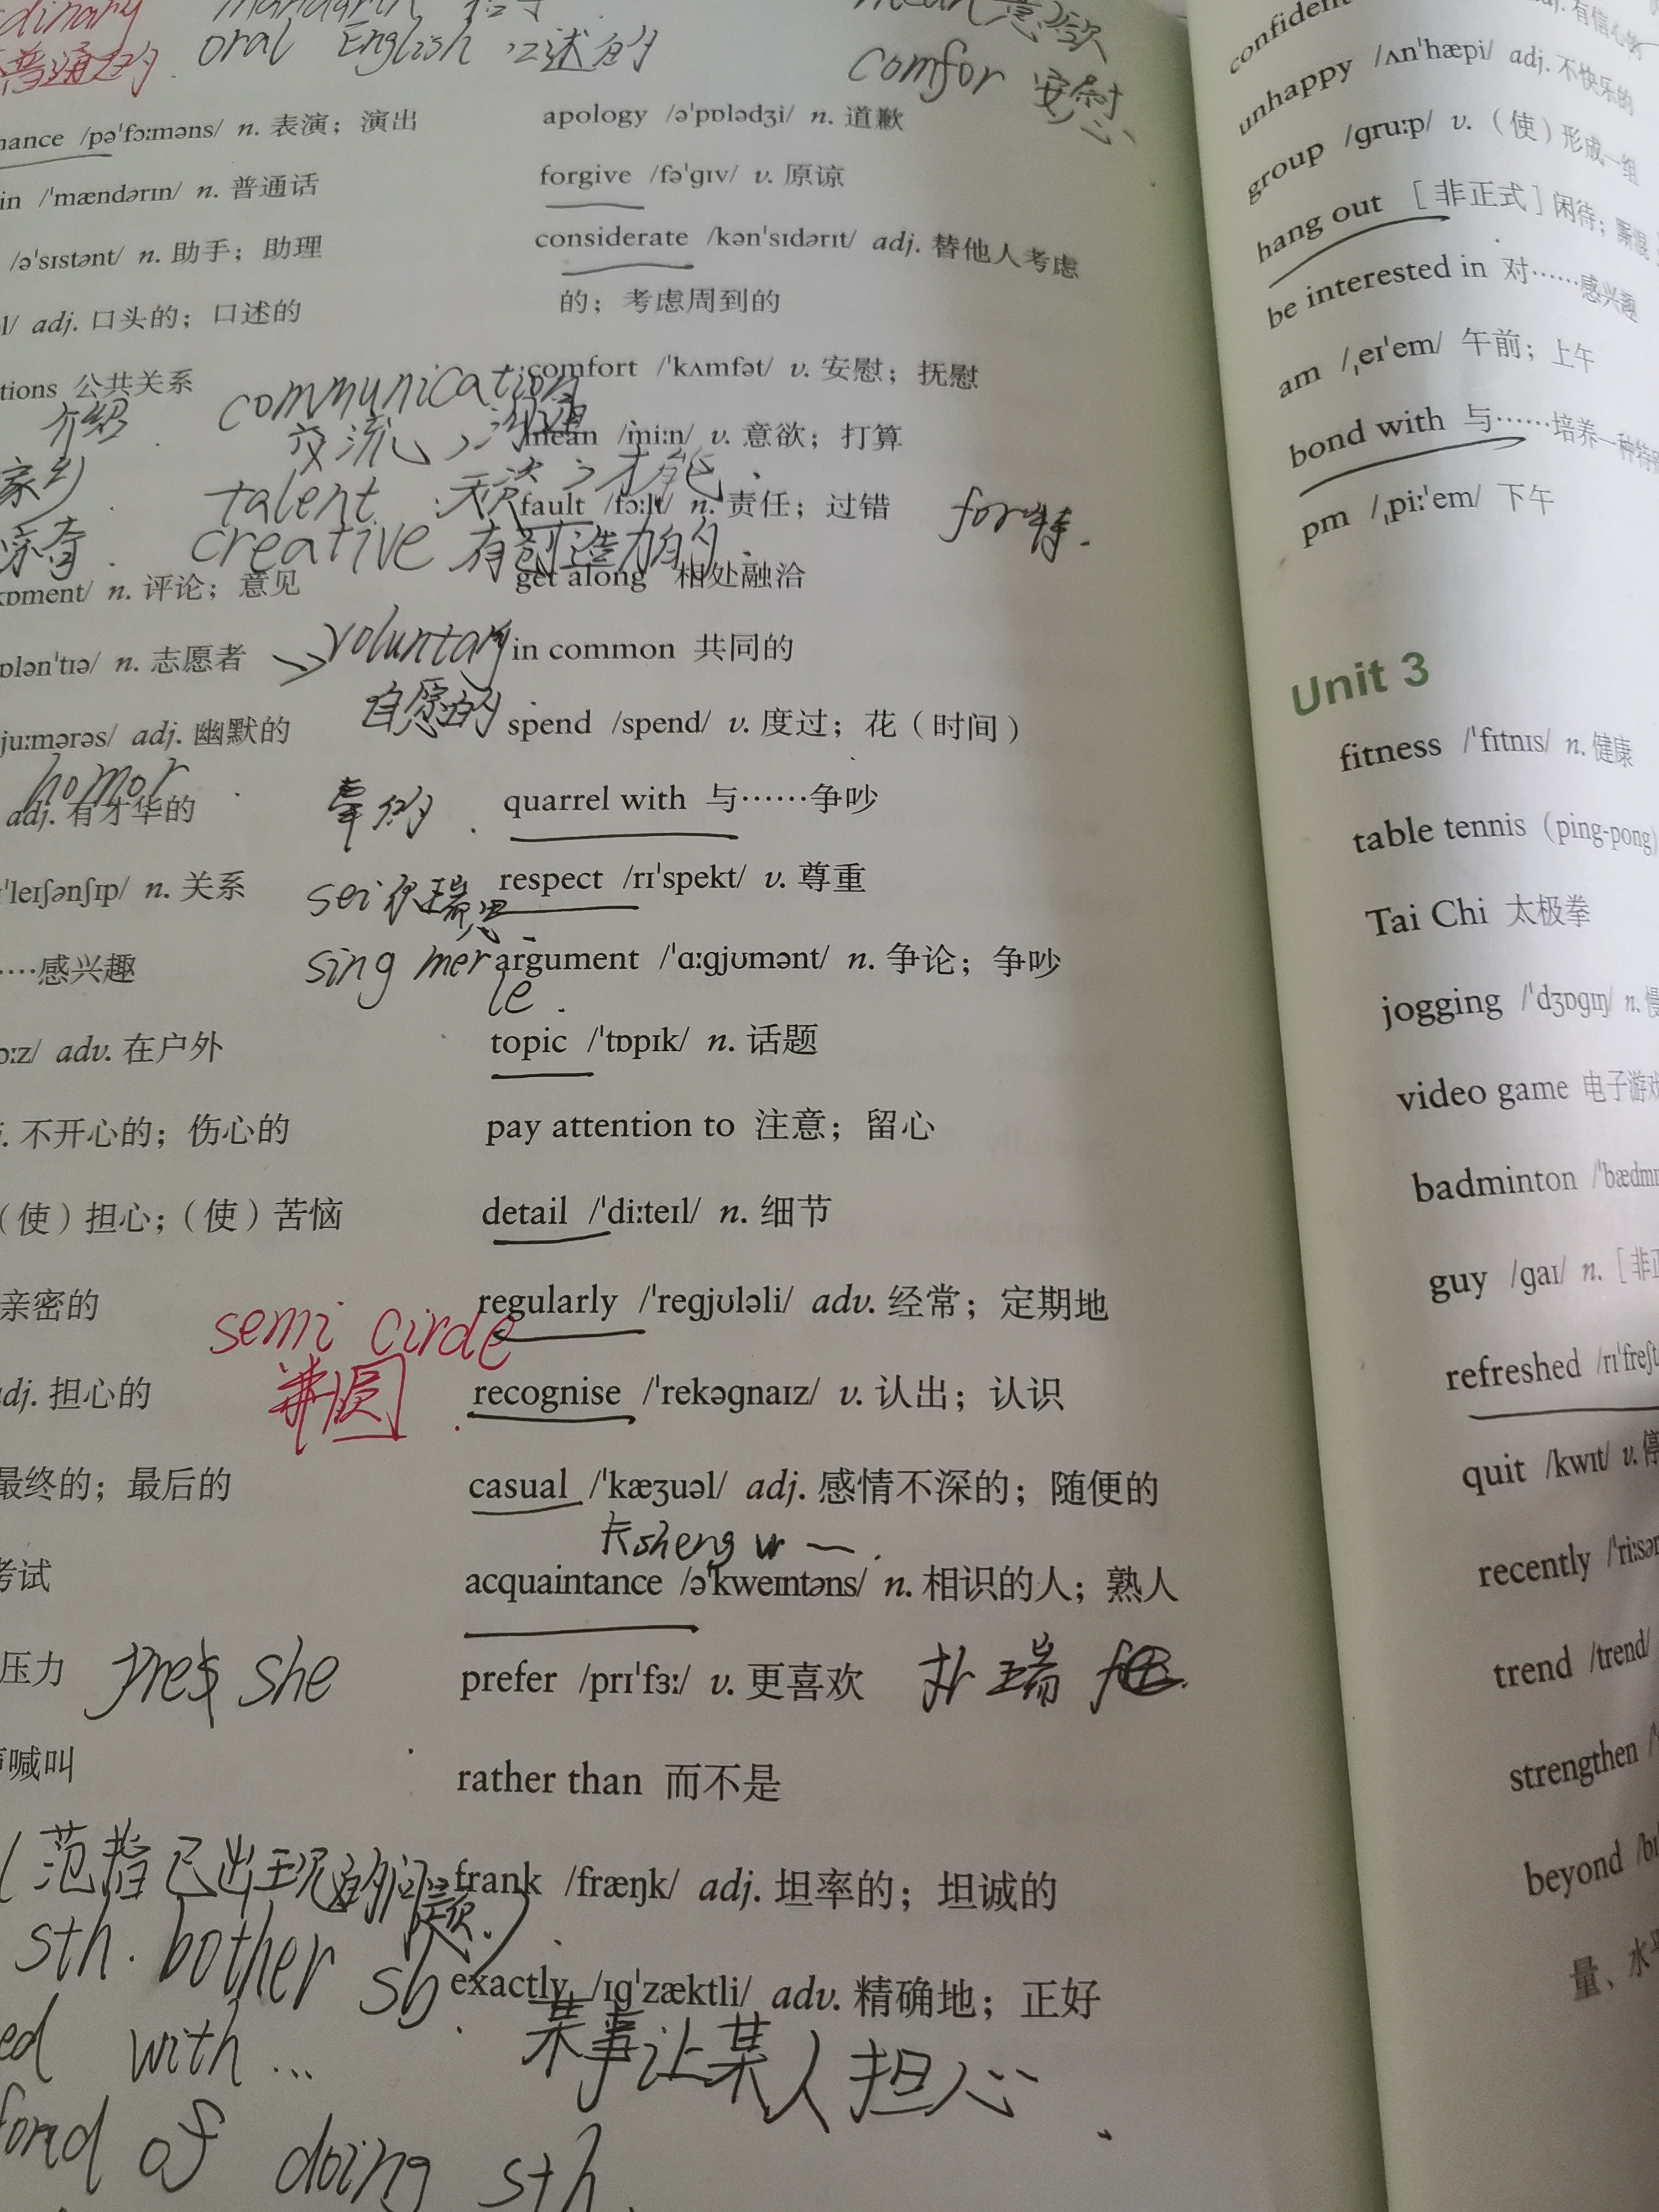 dinary
普通的
oral English 口述的
mance /pəˈfɔːməns/ n. 表演；演出
in /ˈmændərɪn/ n. 普通话
/əˈsɪstənt/ n. 助手；助理
l/ adj. 口头的；口述的
tions 公共关系
介绍
communication
交流，沟通
家乡
talent 天赋，才能
亲奋
creative 有创造力的
kɒment/ n. 评论；意见
ɒlənˈtɪə/ n. 志愿者
voluntary
自愿的
juːmərəs/ adj. 幽默的
homor
adj. 有才华的
ˈleɪʃənʃɪp/ n. 关系
sei 很瑞思
……感兴趣
sing mer
le
ɔːz/ adv. 在户外
. 不开心的；伤心的
（使）担心；（使）苦恼
亲密的
semi circle
adj. 担心的
最终的；最后的
考试
压力
pres she
喊叫
sth. bother sb
ed with...
某事让某人担心
fond of doing sth.
mean 意欲
comfor 安慰
apology /əˈpɒlədʒi/ n. 道歉
forgive /fəˈɡɪv/ v. 原谅
considerate /kənˈsɪdərɪt/ adj. 替他人考虑
的；考虑周到的
comfort /ˈkʌmfət/ v. 安慰；抚慰
mean /miːn/ v. 意欲；打算
fault /fɔːlt/ n. 责任；过错
for特.
get along 相处融洽
in common 共同的
spend /spend/ v. 度过；花（时间）
quarrel with 与……争吵
respect /rɪˈspekt/ v. 尊重
argument /ˈɑːɡjʊmənt/ n. 争论；争吵
topic /ˈtɒpɪk/ n. 话题
pay attention to 注意；留心
detail /ˈdiːteɪl/ n. 细节
regularly /ˈreɡjʊləli/ adv. 经常；定期地
recognise /ˈrekəɡnaɪz/ v. 认出；认识
casual /ˈkæʒuəl/ adj. 感情不深的；随便的
卡sheng
acquaintance /əˈkweɪntəns/ n. 相识的人；熟人
prefer /prɪˈfɜː/ v. 更喜欢
扑瑞
rather than 而不是
frank /fræŋk/ adj. 坦率的；坦诚的
exactly /ɪɡˈzæktli/ adv. 精确地；正好
confident
adj. 有信心的
unhappy /ʌnˈhæpi/ adj. 不快乐的
group /ɡruːp/ v.（使）形成一组
hang out ［非正式］闲待；厮混
be interested in 对……感兴趣
am /ˌeɪˈem/ 午前；上午
bond with 与……培养一种特殊
pm /ˌpiːˈem/ 下午
Unit 3
fitness /ˈfɪtnɪs/ n. 健康
table tennis（ping-pong）
Tai Chi 太极拳
jogging /ˈdʒɒɡɪŋ/ n. 慢
video game 电子游戏
badminton /ˈbædmɪ
guy /ɡaɪ/ n.［非正
refreshed /rɪˈfreʃt
quit /kwɪt/ v. 停
recently /ˈriːsən
trend /trend/
strengthen
beyond /bɪ
量、水平